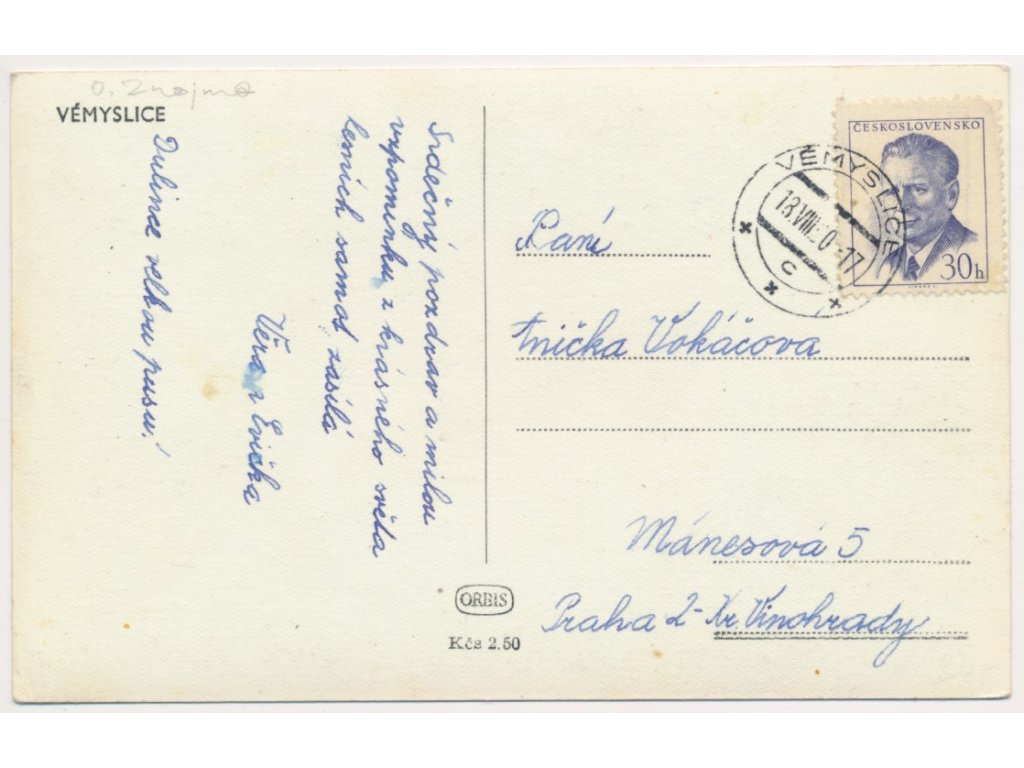 o. Znojmo
VÉMYSLICE
Srdečný pozdrav a milou
vzpomínku z krásného světa
lesních samot zasílá
Věra a Evička
Dulince velkou pusu!
ČESKOSLOVENSKO
30h
VÉMYSLICE
18.VIII. 0-17
c
Paní
Anička Vokáčova
Mánesová 5
Praha 2-Kr. Vinohrady
ORBIS
Kčs 2.50